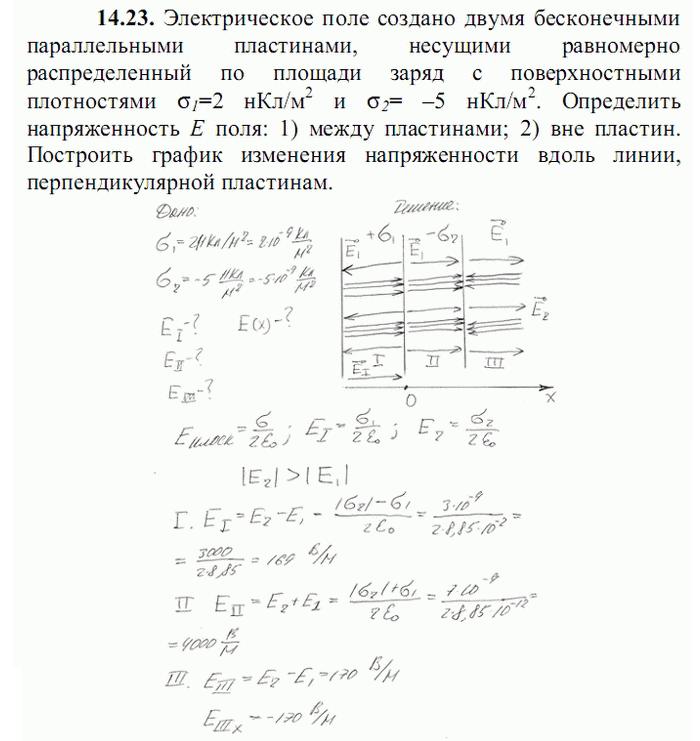 14.23. Электрическое поле создано двумя бесконечными
параллельными пластинами, несущими равномерно
распределенный по площади заряд с поверхностными
плотностями σ1=2 нКл/м² и σ2= –5 нКл/м². Определить
напряженность E поля: 1) между пластинами; 2) вне пластин.
Построить график изменения напряженности вдоль линии,
перпендикулярной пластинам.
Дано: Решение:
σ₁=2нКл/м²=2·10⁻⁹ Кл/м²
σ₂=-5 нКл/м²=-5·10⁻⁹ Кл/м²
E_I-? E(x)-?
E_II-?
E_III-?
E₁ +σ₁ E₁ -σ₂ E₁
E₂
I II III
E_I
0 x
E плоск = σ/2ε₀ ; E_I = σ₁/2ε₀ ; E₂ = σ₂/2ε₀
|E₂| > |E₁|
I. E_I = E₂ - E₁ - |σ₂|-σ₁/2ε₀ = 3·10⁻⁹/2·8,85·10⁻¹² =
= 3000/2·8,85 = 169 В/м
II E_II = E₂ + E₁ = |σ₂|+σ₁/2ε₀ = 7·10⁻⁹/2·8,85·10⁻¹² =
= 4000 В/м
III. E_III = E₂ - E₁ = 170 В/м
E_IIIx = -170 В/м